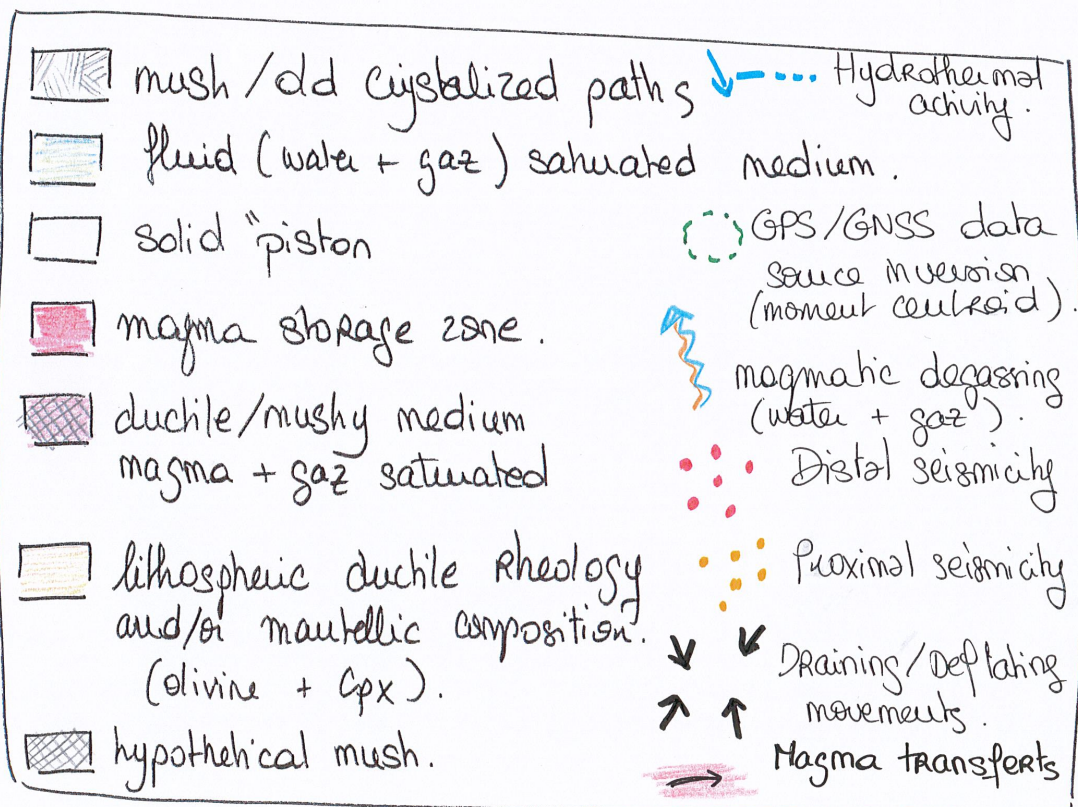 mush/old crystalized paths
fluid (water + gaz) saturated medium.
solid "piston
magma storage zone.
ductile/mushy medium
magma + gaz saturated
lithospheric ductile rheology
and/or mantellic composition.
(olivine + Cpx).
hypothetical mush.
Hydrothermal
activity.
GPS/GNSS data
source inversion
(moment centroid).
magmatic degassing
(water + gaz).
Distal seismicity
Proximal seismicity
Draining/Deflating
movements.
Magma transferts